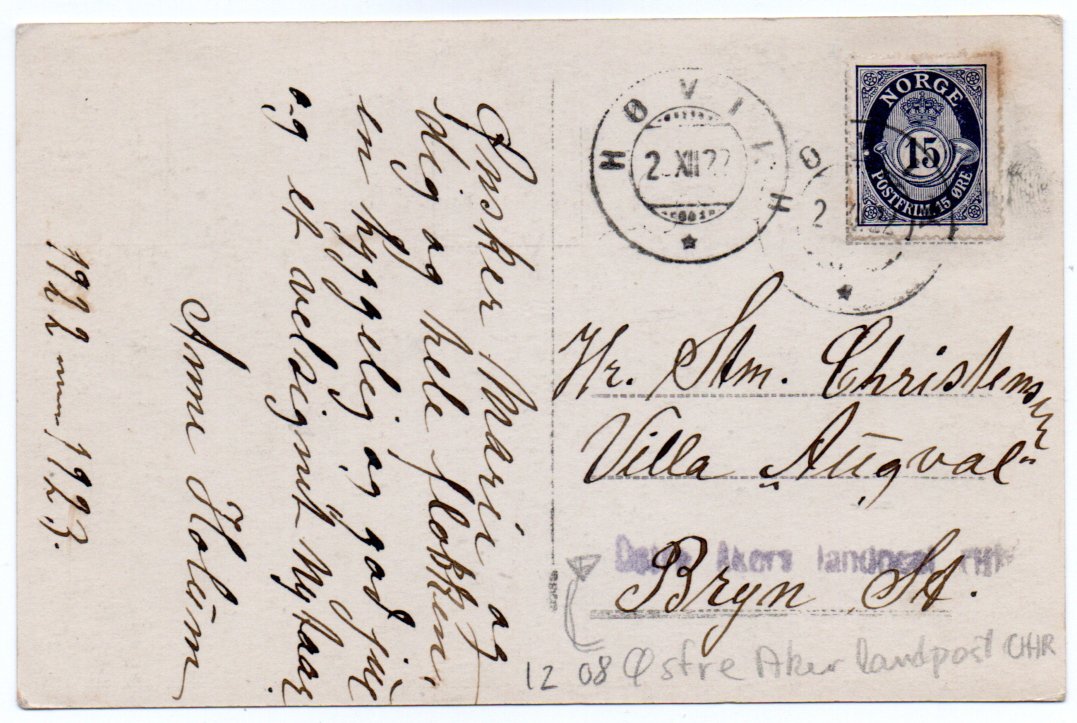 Ønsker Marie og
dig og hele flokken,
en hyggelig og god jul
og et velsignet Nytaar
Anne Holum
1922 — 1923.
HØVIK
2 XII 22
HØ
2
NORGE
15
POSTFRIM. 15 ØRE
Hr. Stm. Christensen
Villa „Augval"
Østre Akers landpost
Bryn St.
12 08 Østre Aker landpost CHR